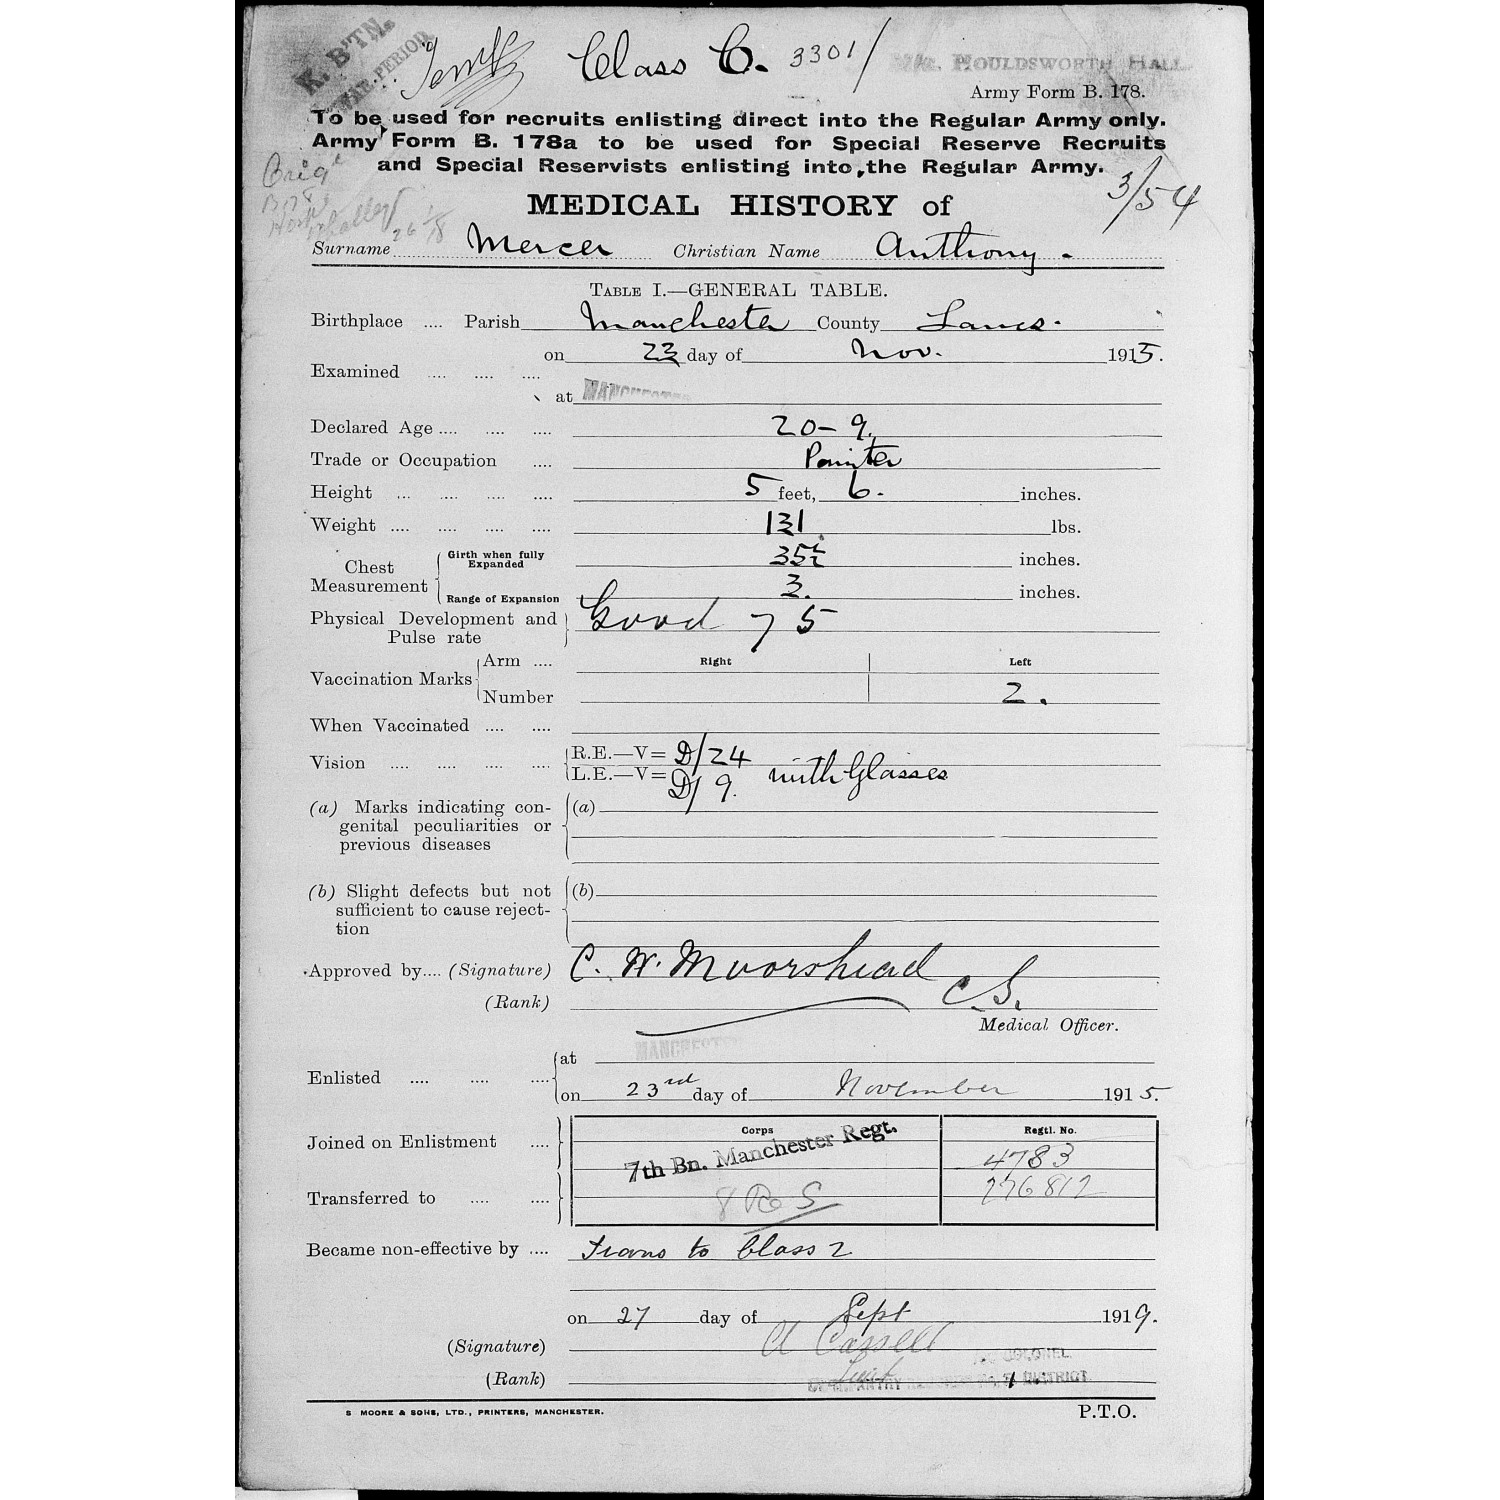 K. B'TN.
WAR. PERIOD.
Class C. 3301/
HOULDSWORTH HALL
Army Form B. 178.
To be used for recruits enlisting direct into the Regular Army only.
Army Form B. 178a to be used for Special Reserve Recruits
and Special Reservists enlisting into the Regular Army.
3/54
MEDICAL HISTORY of
26/1/18
Surname Mercer Christian Name Anthony.
TABLE I.—GENERAL TABLE.
Birthplace .... Parish Manchester County Lancs.
on 23 day of Nov. 1915.
Examined .... .... ....
at MANCHESTER
Declared Age .... .... .... 20-9.
Trade or Occupation .... Painter
Height ... .... .... .... 5 feet, 6. inches.
Weight .... .... .... .... 131 lbs.
Chest Measurement
Girth when fully Expanded 35½ inches.
Range of Expansion 3. inches.
Physical Development and Pulse rate Good 75
Vaccination Marks
Arm .... Right Left
Number 2.
When Vaccinated .... ....
Vision .... .... .... ....
R.E.—V= D/24
L.E.—V= D/9. with Glasses
(a) Marks indicating con- (a)
genital peculiarities or
previous diseases
(b) Slight defects but not (b)
sufficient to cause reject-
tion
Approved by.... (Signature) C. W. Moorshead
(Rank) C.S.
Medical Officer.
MANCHESTER
Enlisted .... .... ....
at
on 23rd day of November 1915.
Corps Regtl. No.
Joined on Enlistment .... 7th Bn. Manchester Regt. 4783
276812
Transferred to .... .... 8 Res
Became non-effective by .... Trans to Class Z
on 27 day of Sept 1919.
(Signature) A Cassell
(Rank) Lieut
COLONEL
DISTRICT
S MOORE & SONS, LTD., PRINTERS, MANCHESTER.
P.T.O.